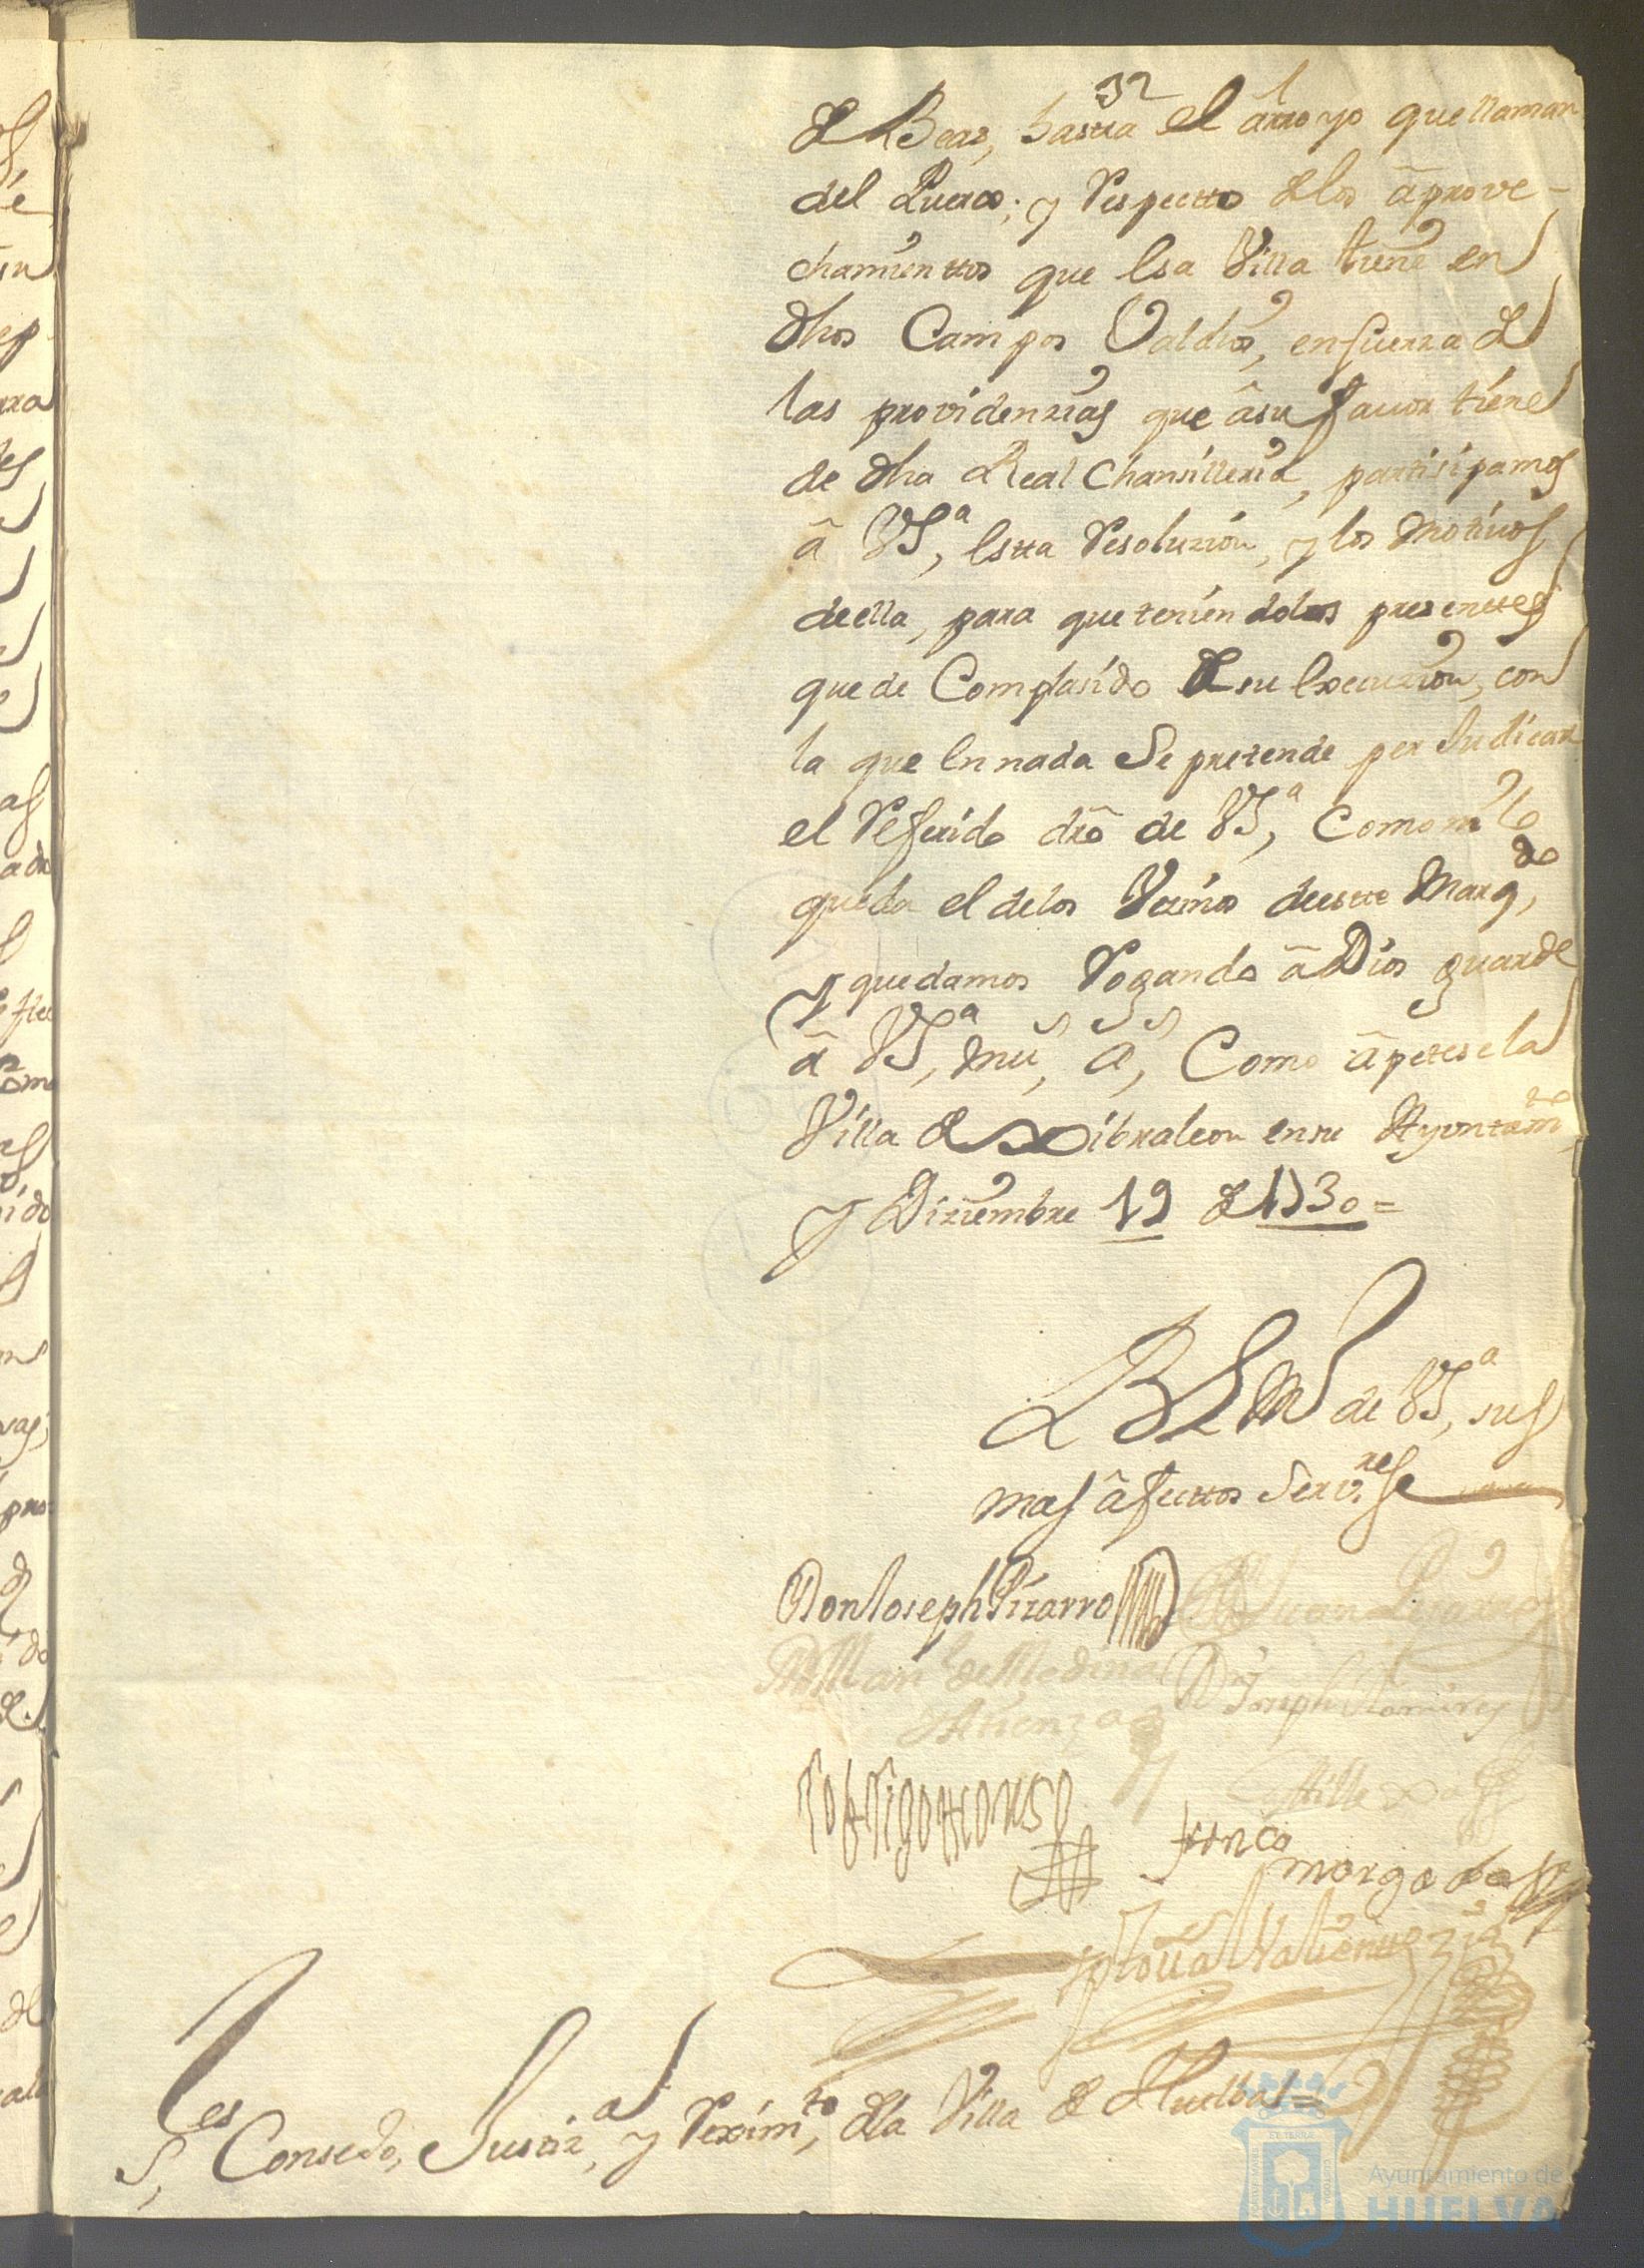 32
de Beas, hasta el arroyo que llaman
del Puerco; y Respectto de los âprove-
chamienttos que esa Villa tiene en
dhos Campos Valdios, enfuerza de
las providenzias que âsu favor tiene
de dha Real Chansilleria, partisipamos
â VSª, estta Resoluzion, y los motivos
deella, para que teniendolos presenttes
quede Complasido de su execuzion, con
la que en nada Se pretende perJudicar
el Referido dro de VSª, Como ni lo
queda el delos Vezinos deestte Marqdo,
y quedamos Rogando â Dios guarde
â VSª, ms, as, Como âpetese la
Villa de Xibraleon ensu Ayuntamto
y Diziembre 19 de 1730=
BLM de VSª, sus
mas âfecttos Servres
Don Joseph Pizarro
Dn Manl de Medina Dn Joseph Ramires
Atienza
Castillexo
Rodrigo Alonso
franco
morgado
Sres Consejo, Justizª, y Reximto, de la Villa de Huelba=
Ayuntamiento de
HUELVA